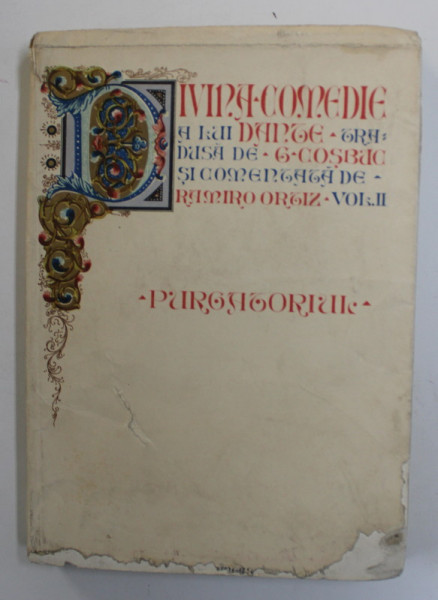 DIVINA·COMEDIE
A LUI DANTE · TRA=
DUSĂ DE · G·COȘBUC
ȘI COMENTATĂ DE ·
RAMIRO ORTIZ · VOL. II
· PURGATORIUL ·